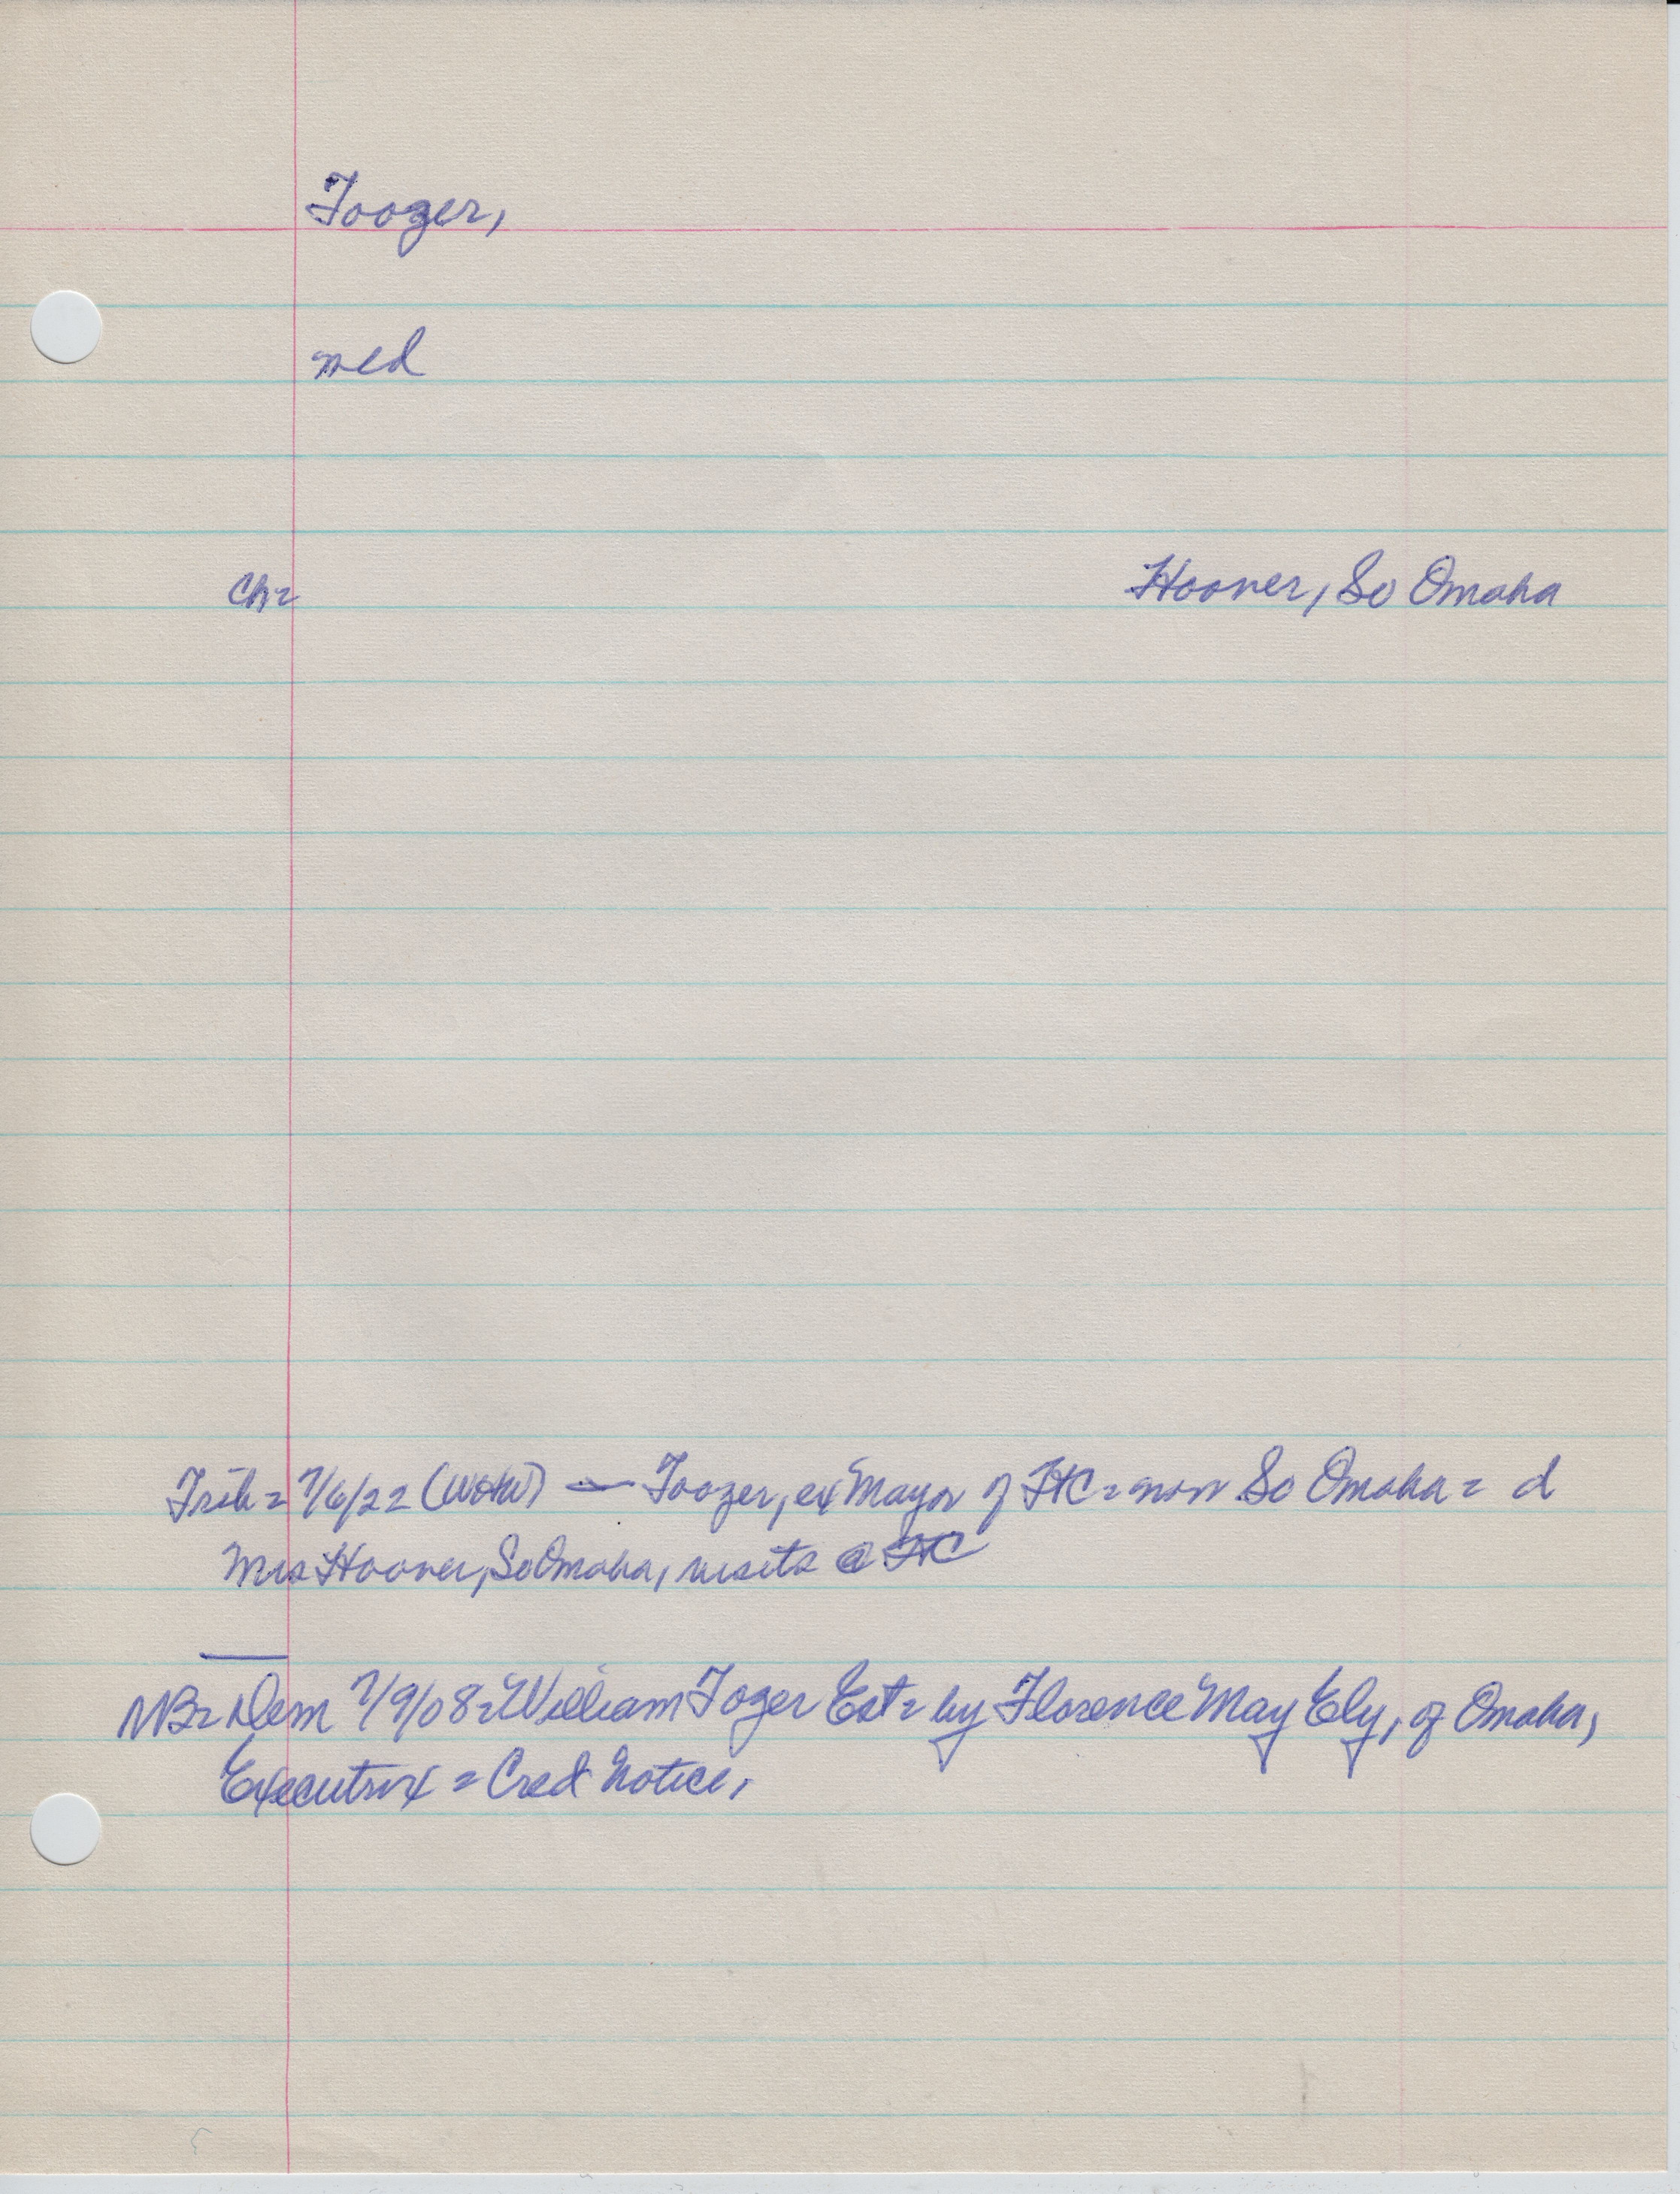 Toozer,
med
Ch=
Hoover, So Omaha
Trib= 7/6/22 (WOW) — Toozer, ex Mayor of FtC= now So Omaha= d
Mrs Hoover, So Omaha, visits @ FtC
NB= Dem 7/9/08= William Tozer Est= by Florence May Ely, of Omaha,
Executrix = Cred Notice.